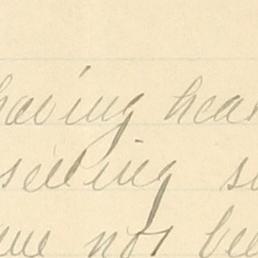 having hear
seeing s
me not bee